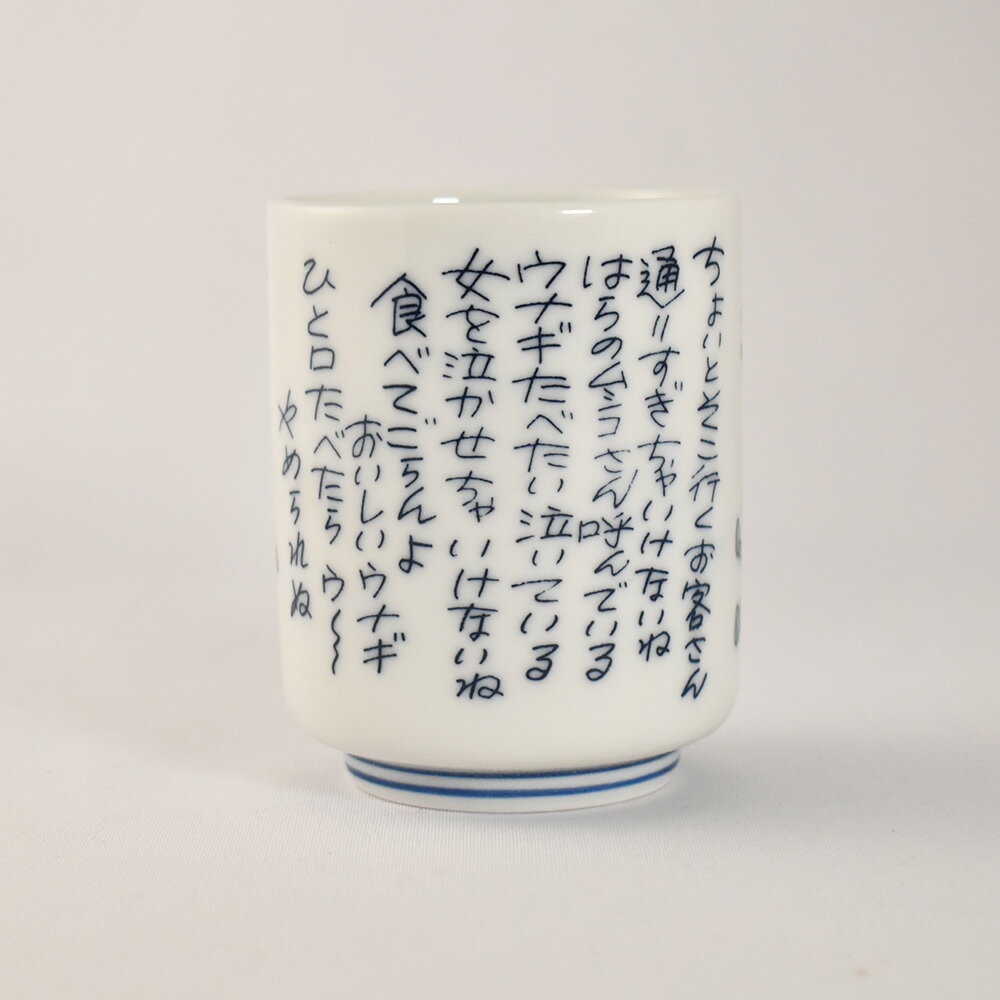 ちょいとそこ行くお客さん
通りすぎちゃいけないね
はらのムシコさん呼んでいる
ウナギたべたい泣いている
女を泣かせちゃいけないね
食べてごらんよ
おいしいウナギ
ひと口たべたらウ〜〜
やめられぬ